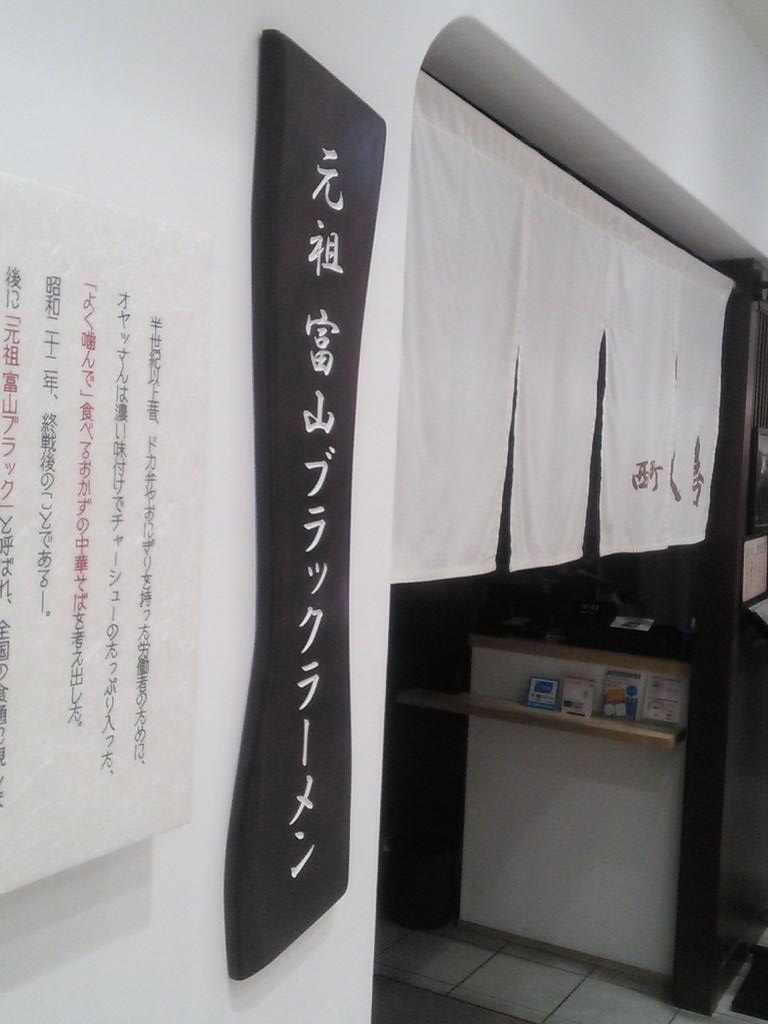 元祖 富山ブラックラーメン
半世紀以上昔、ドカ弁やおにぎりを持った労働者のために、
オヤッさんは濃い味付けでチャーシューのたっぷり入った、
「よく噛んで」食べるおかずの中華そばを考え出した。
昭和二十二年、終戦後のことである―。
後に「元祖 富山ブラック」と呼ばれ、全国の食通
西町